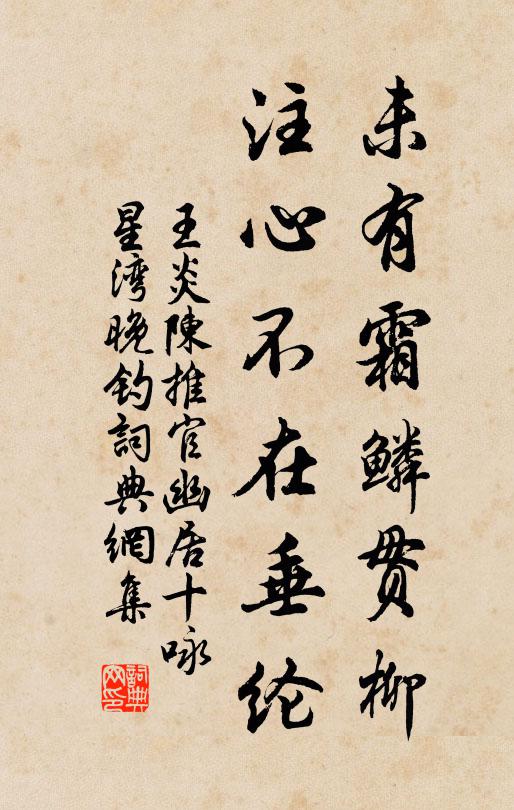 未有霜鱗貫柳
注心不在垂纶
王炎陳推官幽居十咏
星湾晚钓詞典網集
詞典網印